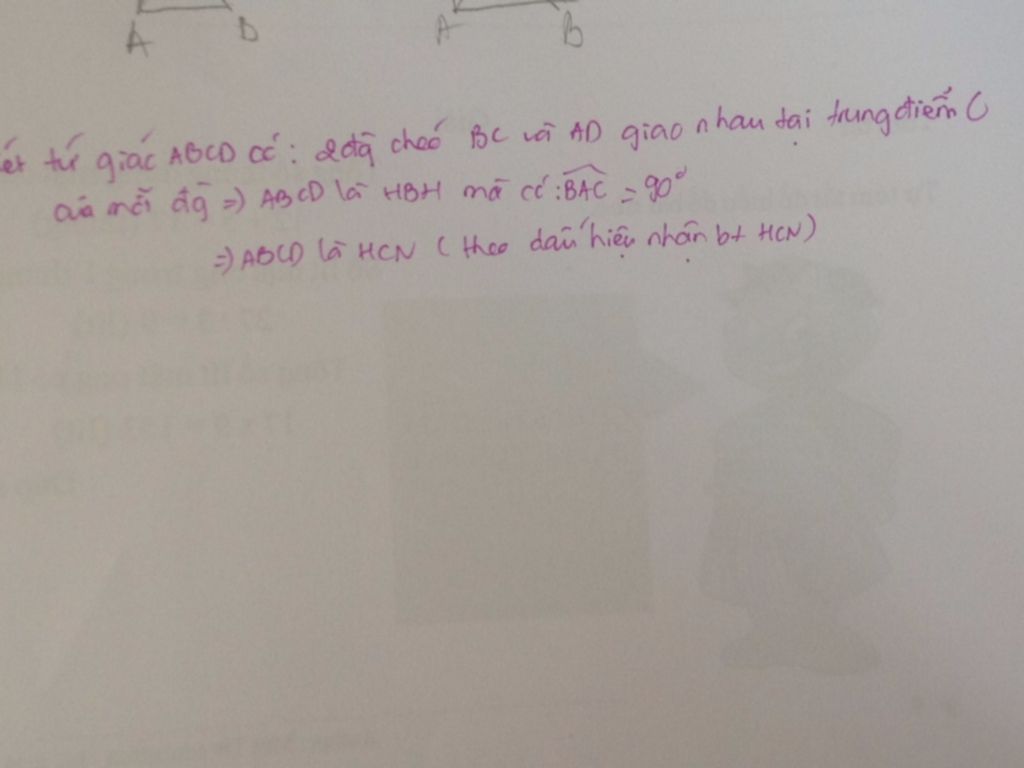 A D A B
ét tứ giác ABCD có: 2 đg chéo BC và AD giao nhau tại trung điểm (
của mỗi đg => ABCD là HBH mà có: BAC = 90°
=> ABCD là HCN ( theo dấu hiệu nhận bt HCN)